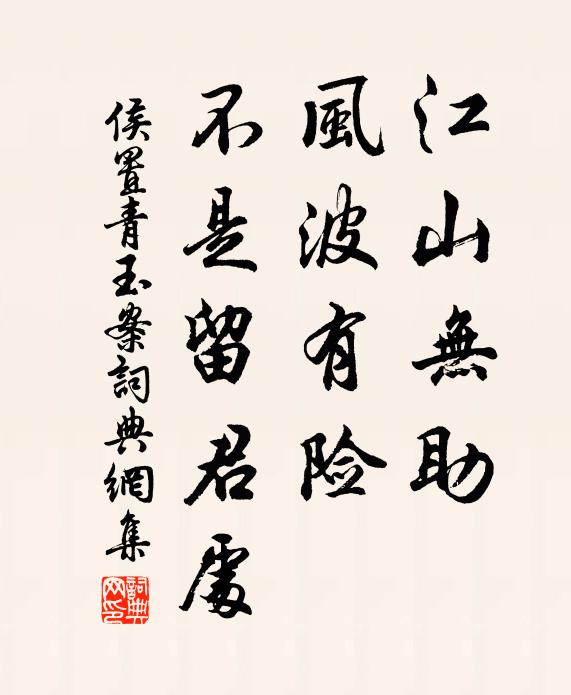 江山無助
風波有险
不是留君處
侯置青玉案詞典網集
詞典網印